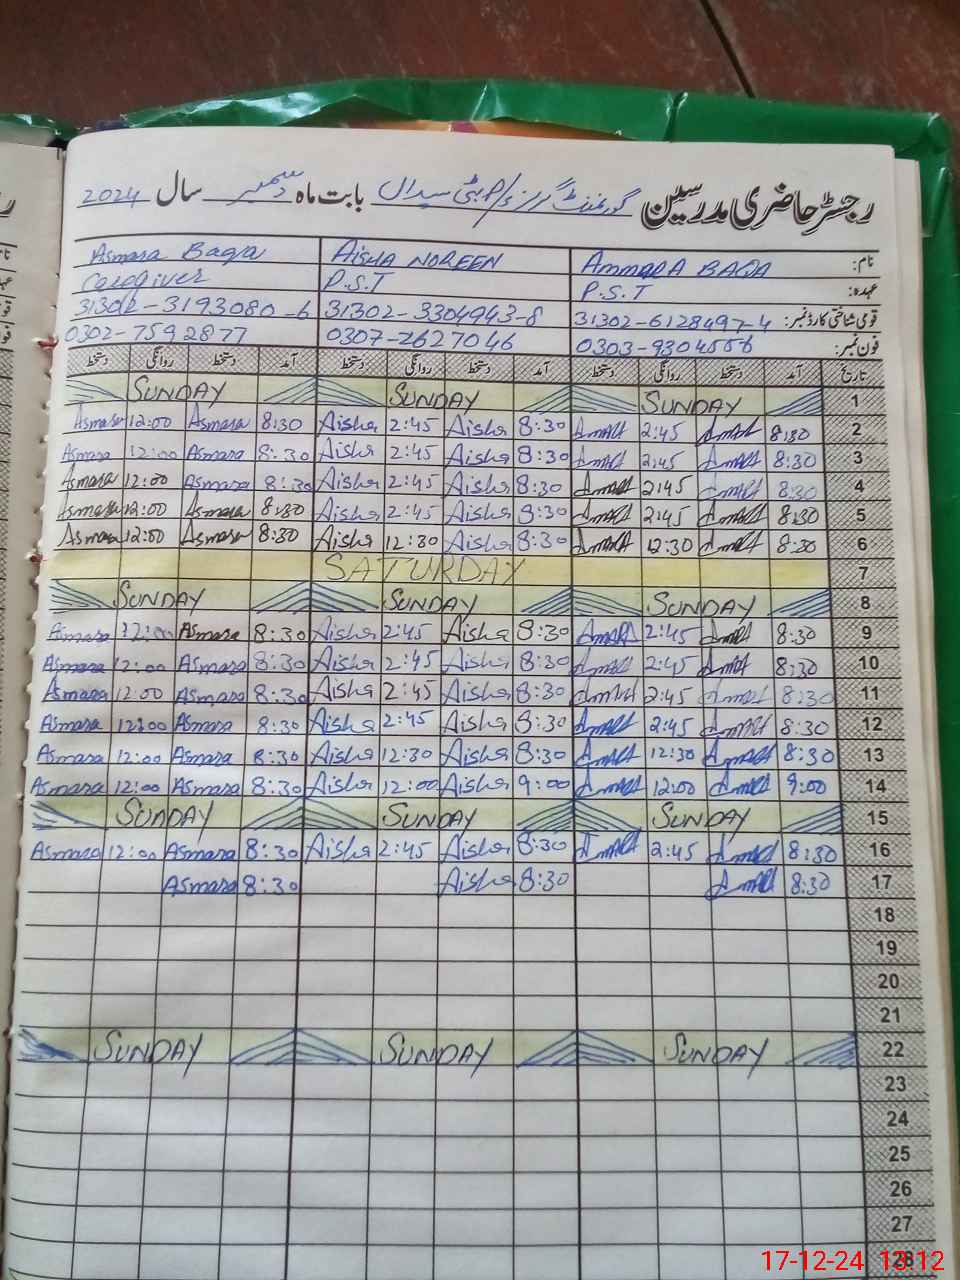 رجسٹر حاضری مدرسین گورنمنٹ گرلز بابت ماہ دسمبر سال 2024
نام: AMMARA BAQA AISHA NOREEN Asmara Baqa
عہدہ: P.S.T P.S.T Caregiver
قومی شناختی کارڈ نمبر: 31302-6128497-4 31302-3304943-8 31302-3193080-6
فون نمبر: 0303-9304556 0307-7627046 0302-7592877
تاریخ آمد دستخط روانگی دستخط آمد دستخط روانگی دستخط آمد دستخط روانگی دستخط
SUNDAY SUNDAY SUNDAY 1
Asmara 12:00 Asmara 8:30 Aisha 2:45 Aisha 8:30 2:45 8:30 2
Asmara 12:00 Asmara 8:30 Aisha 2:45 Aisha 8:30 2:45 8:30 3
Asmara 12:00 Asmara 8:30 Aisha 2:45 Aisha 8:30 2:45 8:30 4
Asmara 12:00 Asmara 8:30 Aisha 2:45 Aisha 8:30 2:45 8:30 5
Asmara 12:00 Asmara 8:30 Aisha 12:30 Aisha 8:30 12:30 8:30 6
SATURDAY 7
SUNDAY SUNDAY SUNDAY 8
Asmara 12:00 Asmara 8:30 Aisha 2:45 Aisha 8:30 2:45 8:30 9
Asmara 12:00 Asmara 8:30 Aisha 2:45 Aisha 8:30 2:45 8:30 10
Asmara 12:00 Asmara 8:30 Aisha 2:45 Aisha 8:30 2:45 8:30 11
Asmara 12:00 Asmara 8:30 Aisha 2:45 Aisha 8:30 2:45 8:30 12
Asmara 12:00 Asmara 8:30 Aisha 12:30 Aisha 8:30 12:30 8:30 13
Asmara 12:00 Asmara 8:30 Aisha 12:00 Aisha 9:00 12:00 9:00 14
SUNDAY SUNDAY SUNDAY 15
Asmara 12:00 Asmara 8:30 Aisha 2:45 Aisha 8:30 2:45 8:30 16
Asmara 8:30 Aisha 8:30 8:30 17
18
19
20
21
SUNDAY SUNDAY SUNDAY 22
23
24
25
26
27
28
17-12-24 13:12